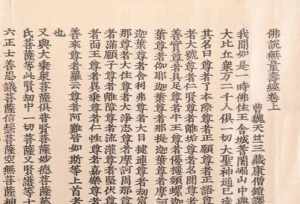 佛説無量壽經卷上
曹魏天竺三藏康僧鎧譯
我聞如是一時佛住王舍城耆闍崛山中與
大比丘衆萬二千人俱一切大聖神通已達
其名曰尊者了本際尊者正願尊者正語尊
者大號尊者仁賢尊者離垢尊者名聞尊者
善實尊者具足尊者牛王尊者優樓頻螺迦
葉尊者伽耶迦葉尊者那提迦葉尊者摩訶
迦葉尊者舍利弗尊者大目揵連尊者劫賓
那尊者大住尊者大淨志尊者摩訶周那尊
者滿願子尊者離障尊者流灌尊者堅伏尊
者面王尊者異乘尊者仁性尊者嘉樂尊者
善來尊者羅云尊者阿難皆如斯等上首者
也
又與大乘衆菩薩俱普賢菩薩妙德菩薩慈
氏菩薩等此賢劫中一切菩薩又賢護等十
六正士善思議菩薩信慧菩薩空無菩薩神